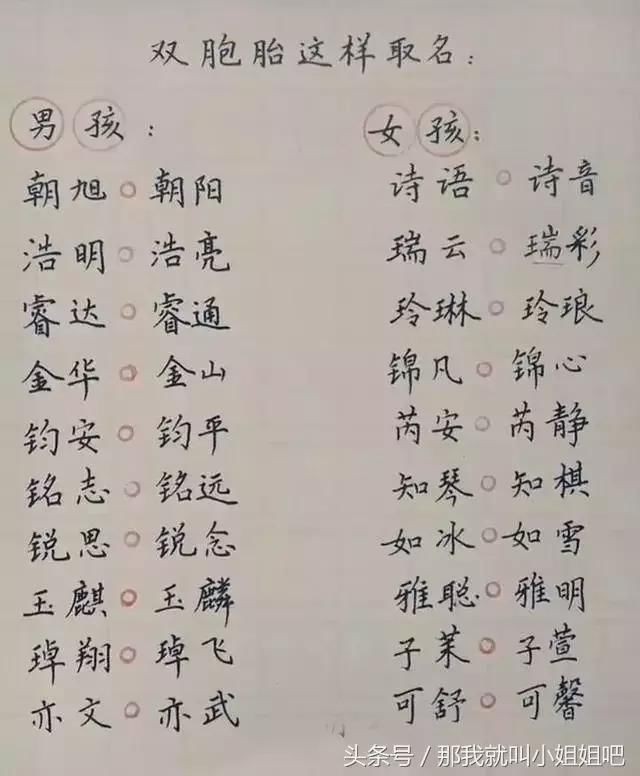 双胞胎这样取名：
男孩：
朝旭。朝阳
浩明。浩亮
睿达。睿通
金华。金山
钧安。钧平
铭志。铭远
锐思。锐念
玉麒。玉麟
琸翔。琸飞
亦文。亦武
女孩：
诗语。诗音
瑞云。瑞彩
玲琳。玲琅
锦凡。锦心
芮安。芮静
知琴。知棋
如冰。如雪
雅聪。雅明
子茉。子萱
可舒。可馨
头条号／那我就叫小姐姐吧